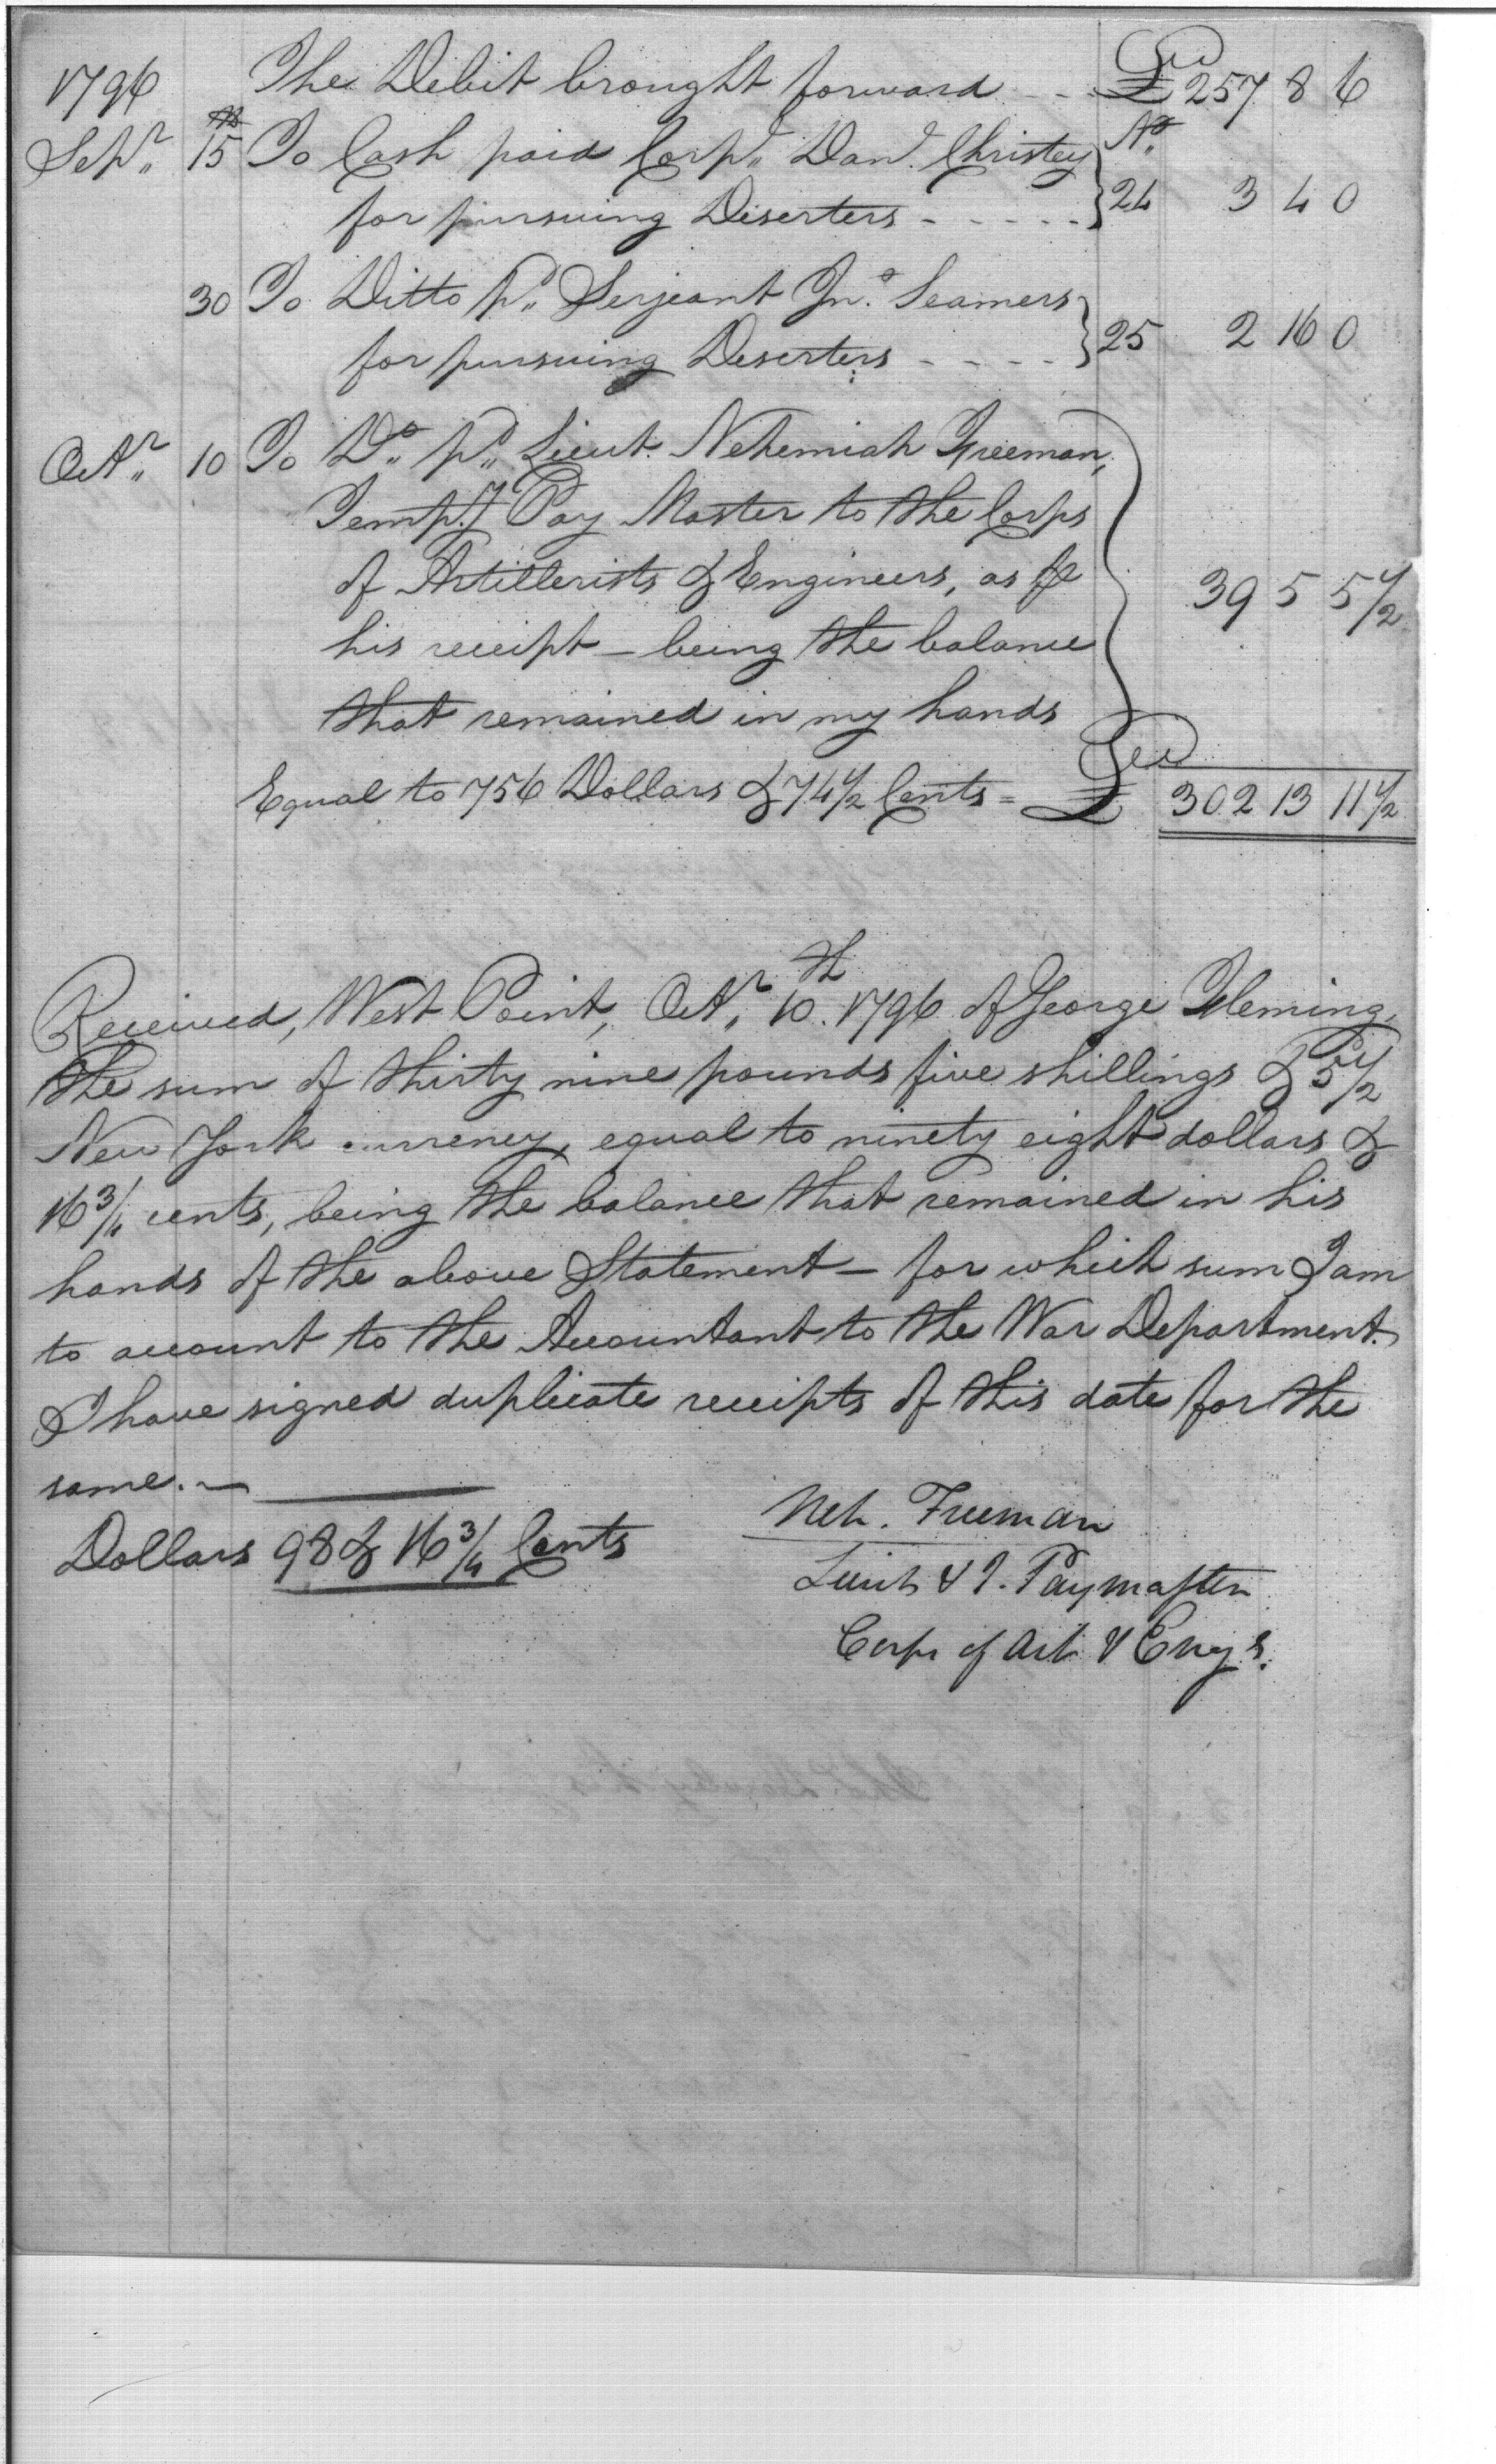 1796 The Debit brought forward - - £ 257 8 6
Sepr. 15th To Cash paid Corpl. Danl. Christey No.
for pursuing Diserters - - - - - 24 3 4 0
30 To Ditto pd. Serjeant Jno. Seamers
for pursuing Deserters - - - - 25 2 16 0
Octr. 10 To Do. pd. Lieut. Nehemiah Freeman,
Tempy. Pay Master to the Corps
of Artillerists & Engineers, as per 39 5 5 1/2
his receipt — being the balance
that remained in my hands
Equal to 756 Dollars & 74 1/2 Cents = £ 302 13 11 1/2
Received, West Point, Octr. 10th. 1796 of George Fleming,
the sum of thirty nine pounds five shillings & 5 1/2
New York currency, equal to ninety eight dollars &
16 3/4 cents, being the balance that remained in his
hands of the above Statement — for which sum I am
to account to the Accountant to the War Department.
I have signed duplicate receipts of this date for the
same. —
Dollars 98 & 16 3/4 Cents
Neh. Freeman
Lieut & T. Paymaster
Corps of Art & Engs.